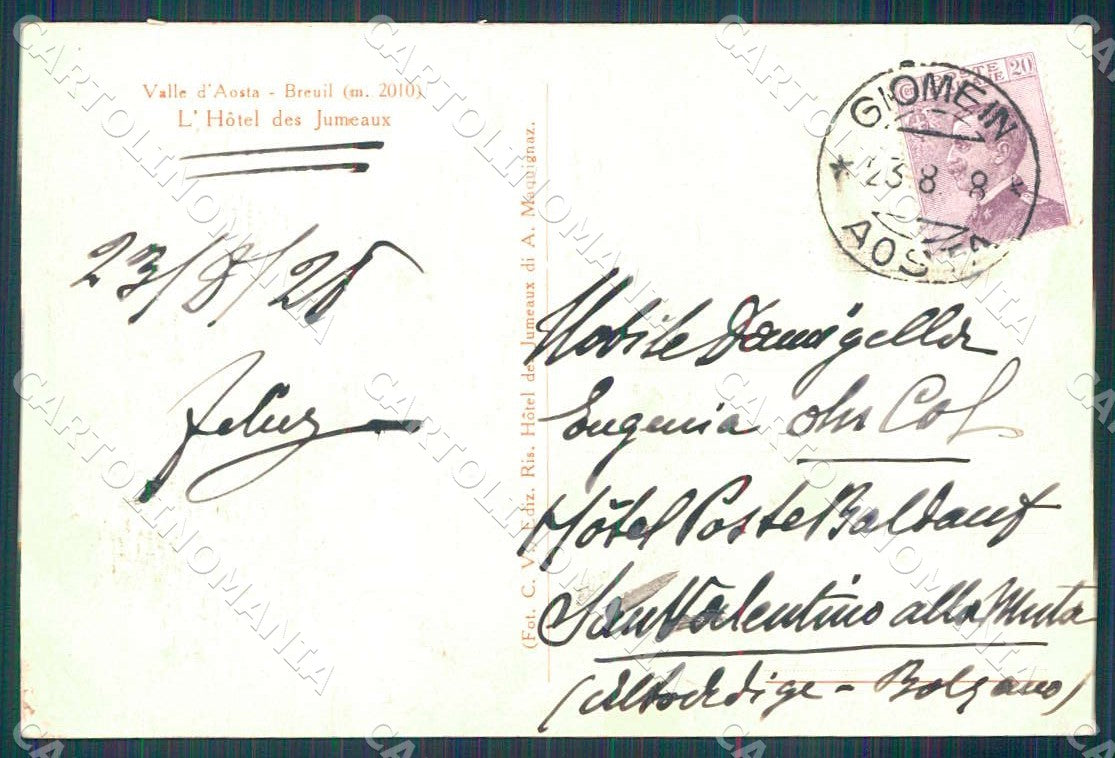 Valle d'Aosta - Breuil (m. 2010)
L' Hôtel des Jumeaux
23/8/28
(Fot. C. V. Ediz. Ris. Hôtel des Jumeaux di A. Maquignaz.
POSTE 20
GIOMEIN
23 8 8
AOSTA
Nobile Damigella
Eugenia
Hôtel Poste Baldauf
San Valentino alla Muta
(Alto Adige - Bolzano)
CARTOLINOMANIA